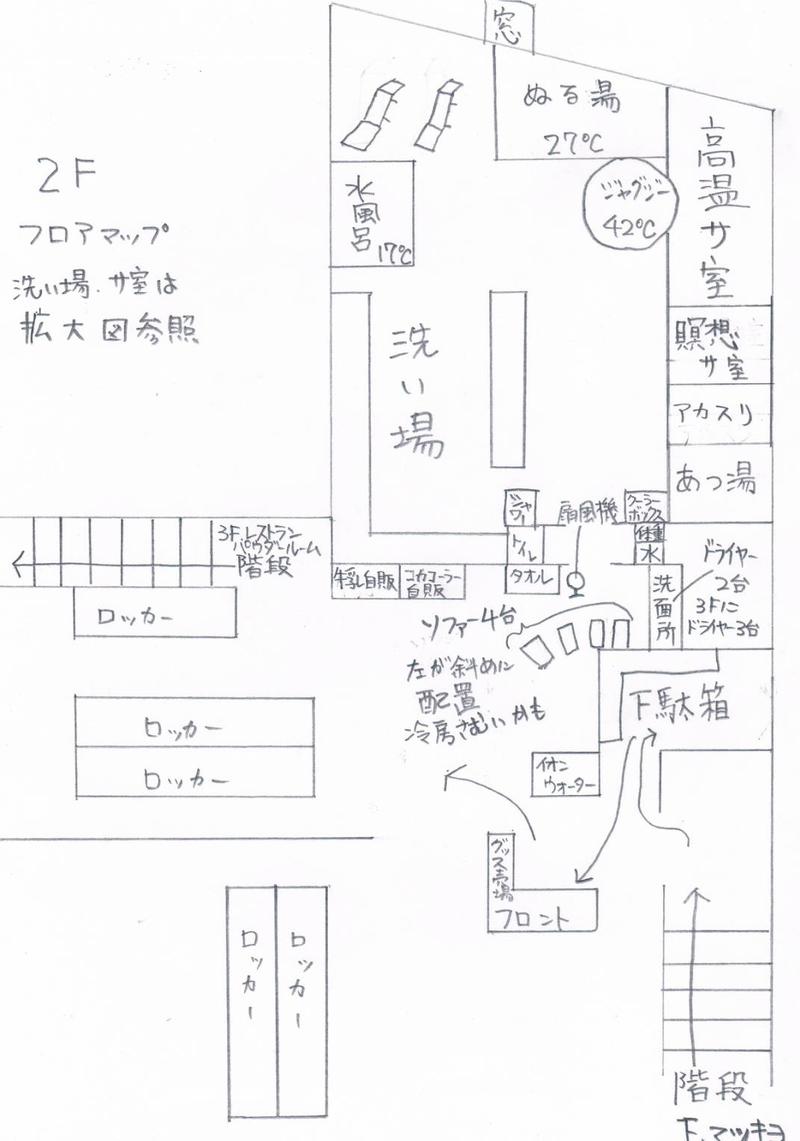 窓
ぬる湯
27℃
高温サ室
2F
フロアマップ
洗い場.サ室は
拡大図参照
水風呂
17℃
ジャグジー
42℃
瞑想
サ室
洗い場
アカスリ
あつ湯
シャワー
扇風機
クーラー
ボックス
体重
水
トイレ
タオル
3Fレストラン
パウダールーム
階段
牛乳自販
コカコーラー
自販
ドライヤー
2台
3Fに
ドライヤー3台
洗面所
ロッカー
ソファー4台
左が斜めに
配置
冷房さむいかも
下駄箱
ロッカー
ロッカー
イオン
ウォーター
グッズ売場
フロント
ロッカー
ロッカー
階段
下.マツキヨ